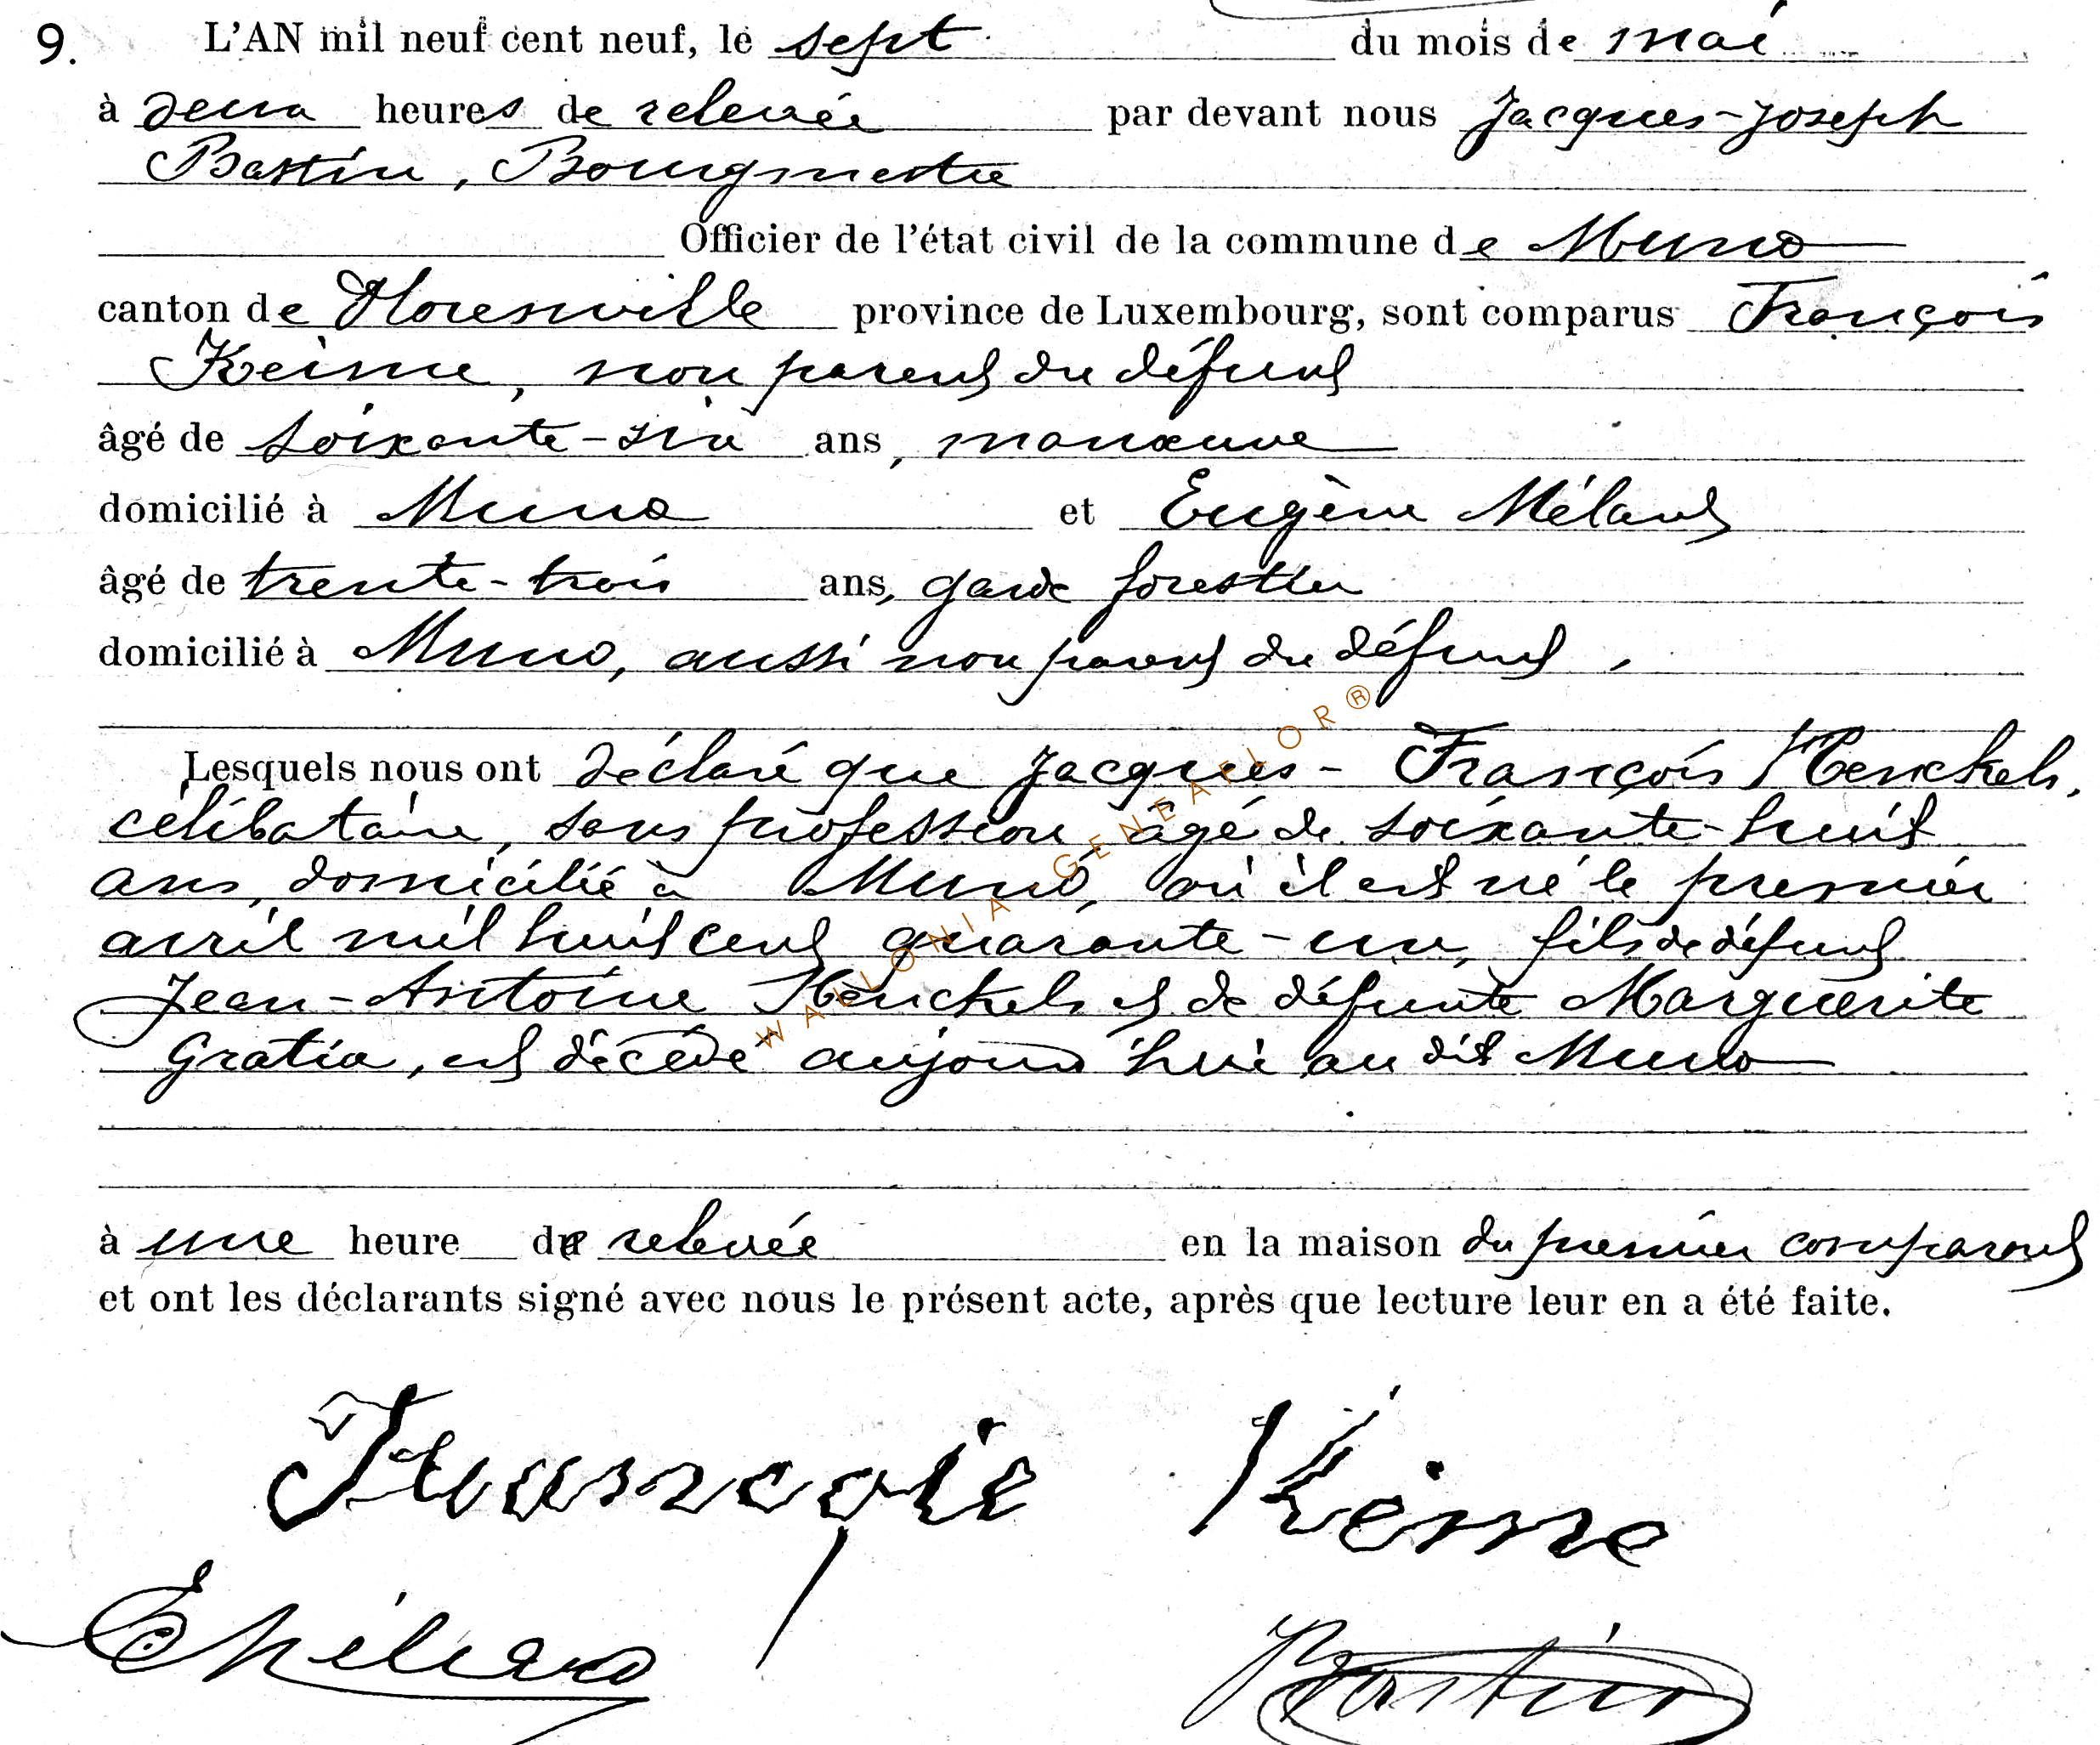 9. L'AN mil neuf cent neuf, le sept du mois de mai
à deux heures de relevée par devant nous Jacques-Joseph
Bastin, Bourgmestre
Officier de l'état civil de la commune de Muno
canton de Florenville province de Luxembourg, sont comparus François
Keime, non parent du défunt
âgé de soixante-six ans, manœuvre
domicilié à Muno et Eugène Méland
âgé de trente-trois ans, garde forestier
domicilié à Muno, aussi non parent du défunt,
Lesquels nous ont déclaré que Jacques-François Henckels,
célibataire, sans profession, âgé de soixante-huit
ans, domicilié à Muno, où il est né le premier
avril mil huit cent quarante-un, fils de défunt
Jean-Antoine Henckels et de défunte Marguerite
Gratia, est décédé aujourd'hui au dit Muno
à une heure de relevée en la maison du premier comparant
et ont les déclarants signé avec nous le présent acte, après que lecture leur en a été faite.
François Keime
Bastin
WALLONIA GENEALOR®